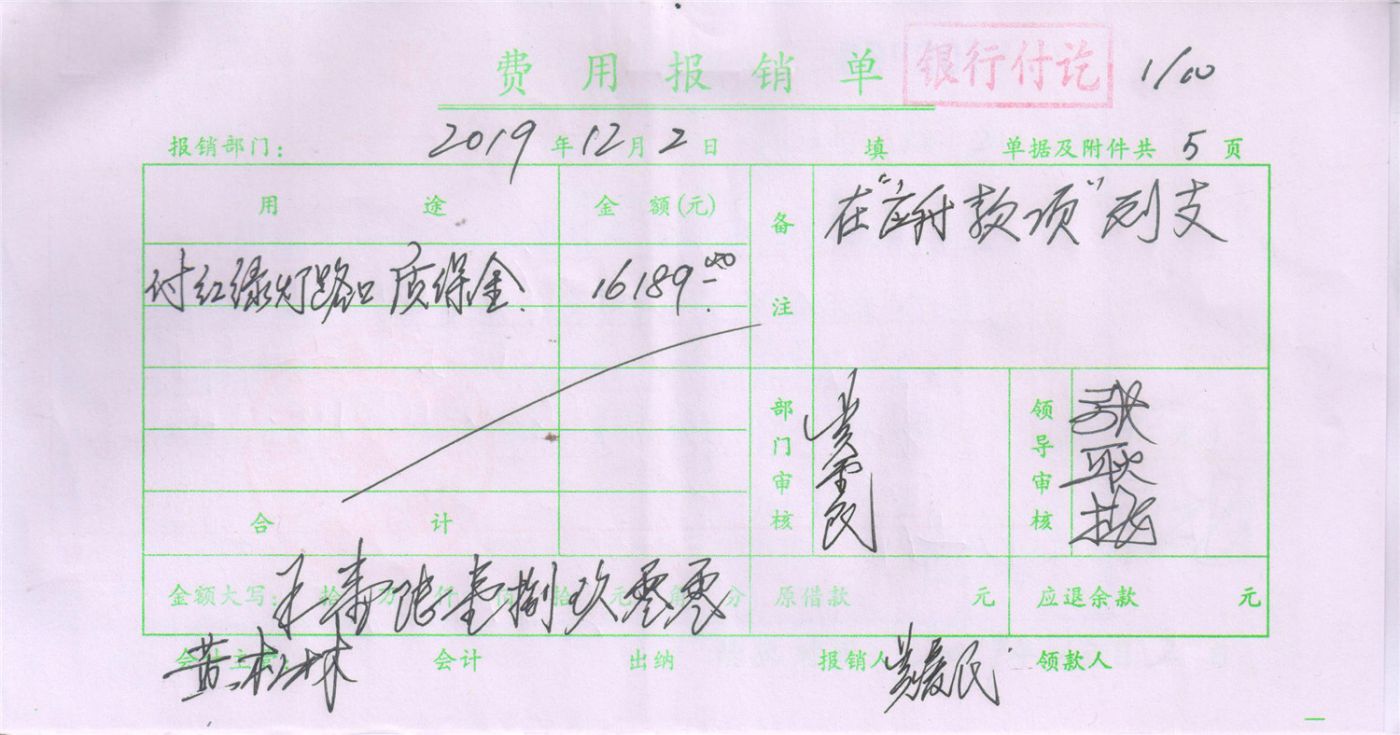 费用报销单 银行付讫 1/00
报销部门: 2019年12月2日 填 单据及附件共5页
用途 金额(元) 备注 在“应付款项”列支
付红绿灯路口质保金. 16189.00
部门审核 领导审核
合计
金额大写: 壹陆壹捌玖零零 原借款 元 应退余款 元
会计主管: 黄松林 会计 出纳 报销人 领款人